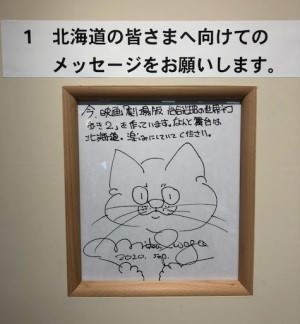 1 北海道の皆さまへ向けての
メッセージをお願いします。
今、映画「劇場版 岩合光昭の世界ネコ
歩き2」を作っています。なんと舞台は
北海道。楽しみにしていてください。
2020. sep.